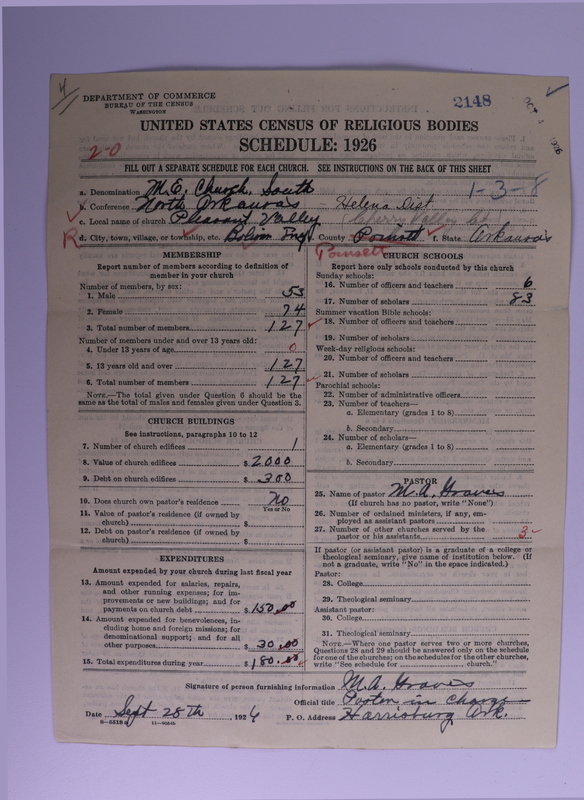 DEPARTMENT OF COMMERCE
BUREAU OF THE CENSUS
WASHINGTON
2148
UNITED STATES CENSUS OF RELIGIOUS BODIES
2-0
SCHEDULE: 1926
FILL OUT A SEPARATE SCHEDULE FOR EACH CHURCH. SEE INSTRUCTIONS ON THE BACK OF THIS SHEET
a. Denomination M.E. Church, South 1-3-8
b. Conference North Arkansas - Helena Dist
c. Local name of church Pleasant Valley Cherry Valley
d. City, town, village, or township, etc. Bolivar e. County Poinsett f. State Arkansas
Poinsett
MEMBERSHIP
Report number of members according to definition of member in your church
Number of members, by sex:
1. Male 53
2. Female 74
3. Total number of members 127
Number of members under and over 13 years old:
4. Under 13 years of age 0
5. 13 years old and over 127
6. Total number of members 127
NOTE.—The total given under Question 6 should be the same as the total of males and females given under Question 3.
CHURCH BUILDINGS
See instructions, paragraphs 10 to 12
7. Number of church edifices 1
8. Value of church edifices $2000
9. Debt on church edifices $300
10. Does church own pastor's residence No
Yes or No
11. Value of pastor's residence (if owned by church) $
12. Debt on pastor's residence (if owned by church) $
EXPENDITURES
Amount expended by your church during last fiscal year
13. Amount expended for salaries, repairs, and other running expenses; for improvements or new buildings; and for payments on church debt $150.00
14. Amount expended for benevolences, including home and foreign missions; for denominational support; and for all other purposes $30.00
15. Total expenditures during year $180.00
CHURCH SCHOOLS
Report here only schools conducted by this church
Sunday schools:
16. Number of officers and teachers 6
17. Number of scholars 83
Summer vacation Bible schools:
18. Number of officers and teachers
19. Number of scholars
Week-day religious schools:
20. Number of officers and teachers
21. Number of scholars
Parochial schools:
22. Number of administrative officers
23. Number of teachers—
a. Elementary (grades 1 to 8)
b. Secondary
24. Number of scholars—
a. Elementary (grades 1 to 8)
b. Secondary
PASTOR
25. Name of pastor M.A. Graves
(If church has no pastor, write "None")
26. Number of ordained ministers, if any, employed as assistant pastors
27. Number of other churches served by the pastor or his assistants 3-
If pastor (or assistant pastor) is a graduate of a college or theological seminary, give name of institution below. (If not a graduate, write "No" in the space indicated.)
Pastor:
28. College
29. Theological seminary
Assistant pastor:
30. College
31. Theological seminary
NOTE.—Where one pastor serves two or more churches, Questions 28 and 29 should be answered only on the schedule for one of the churches; on the schedules for the other churches, write "See schedule for church."
Signature of person furnishing information M.A. Graves
Official title Pastor in Charge
Date Sept 28th, 1926 P. O. Address Harrisburg Ark.